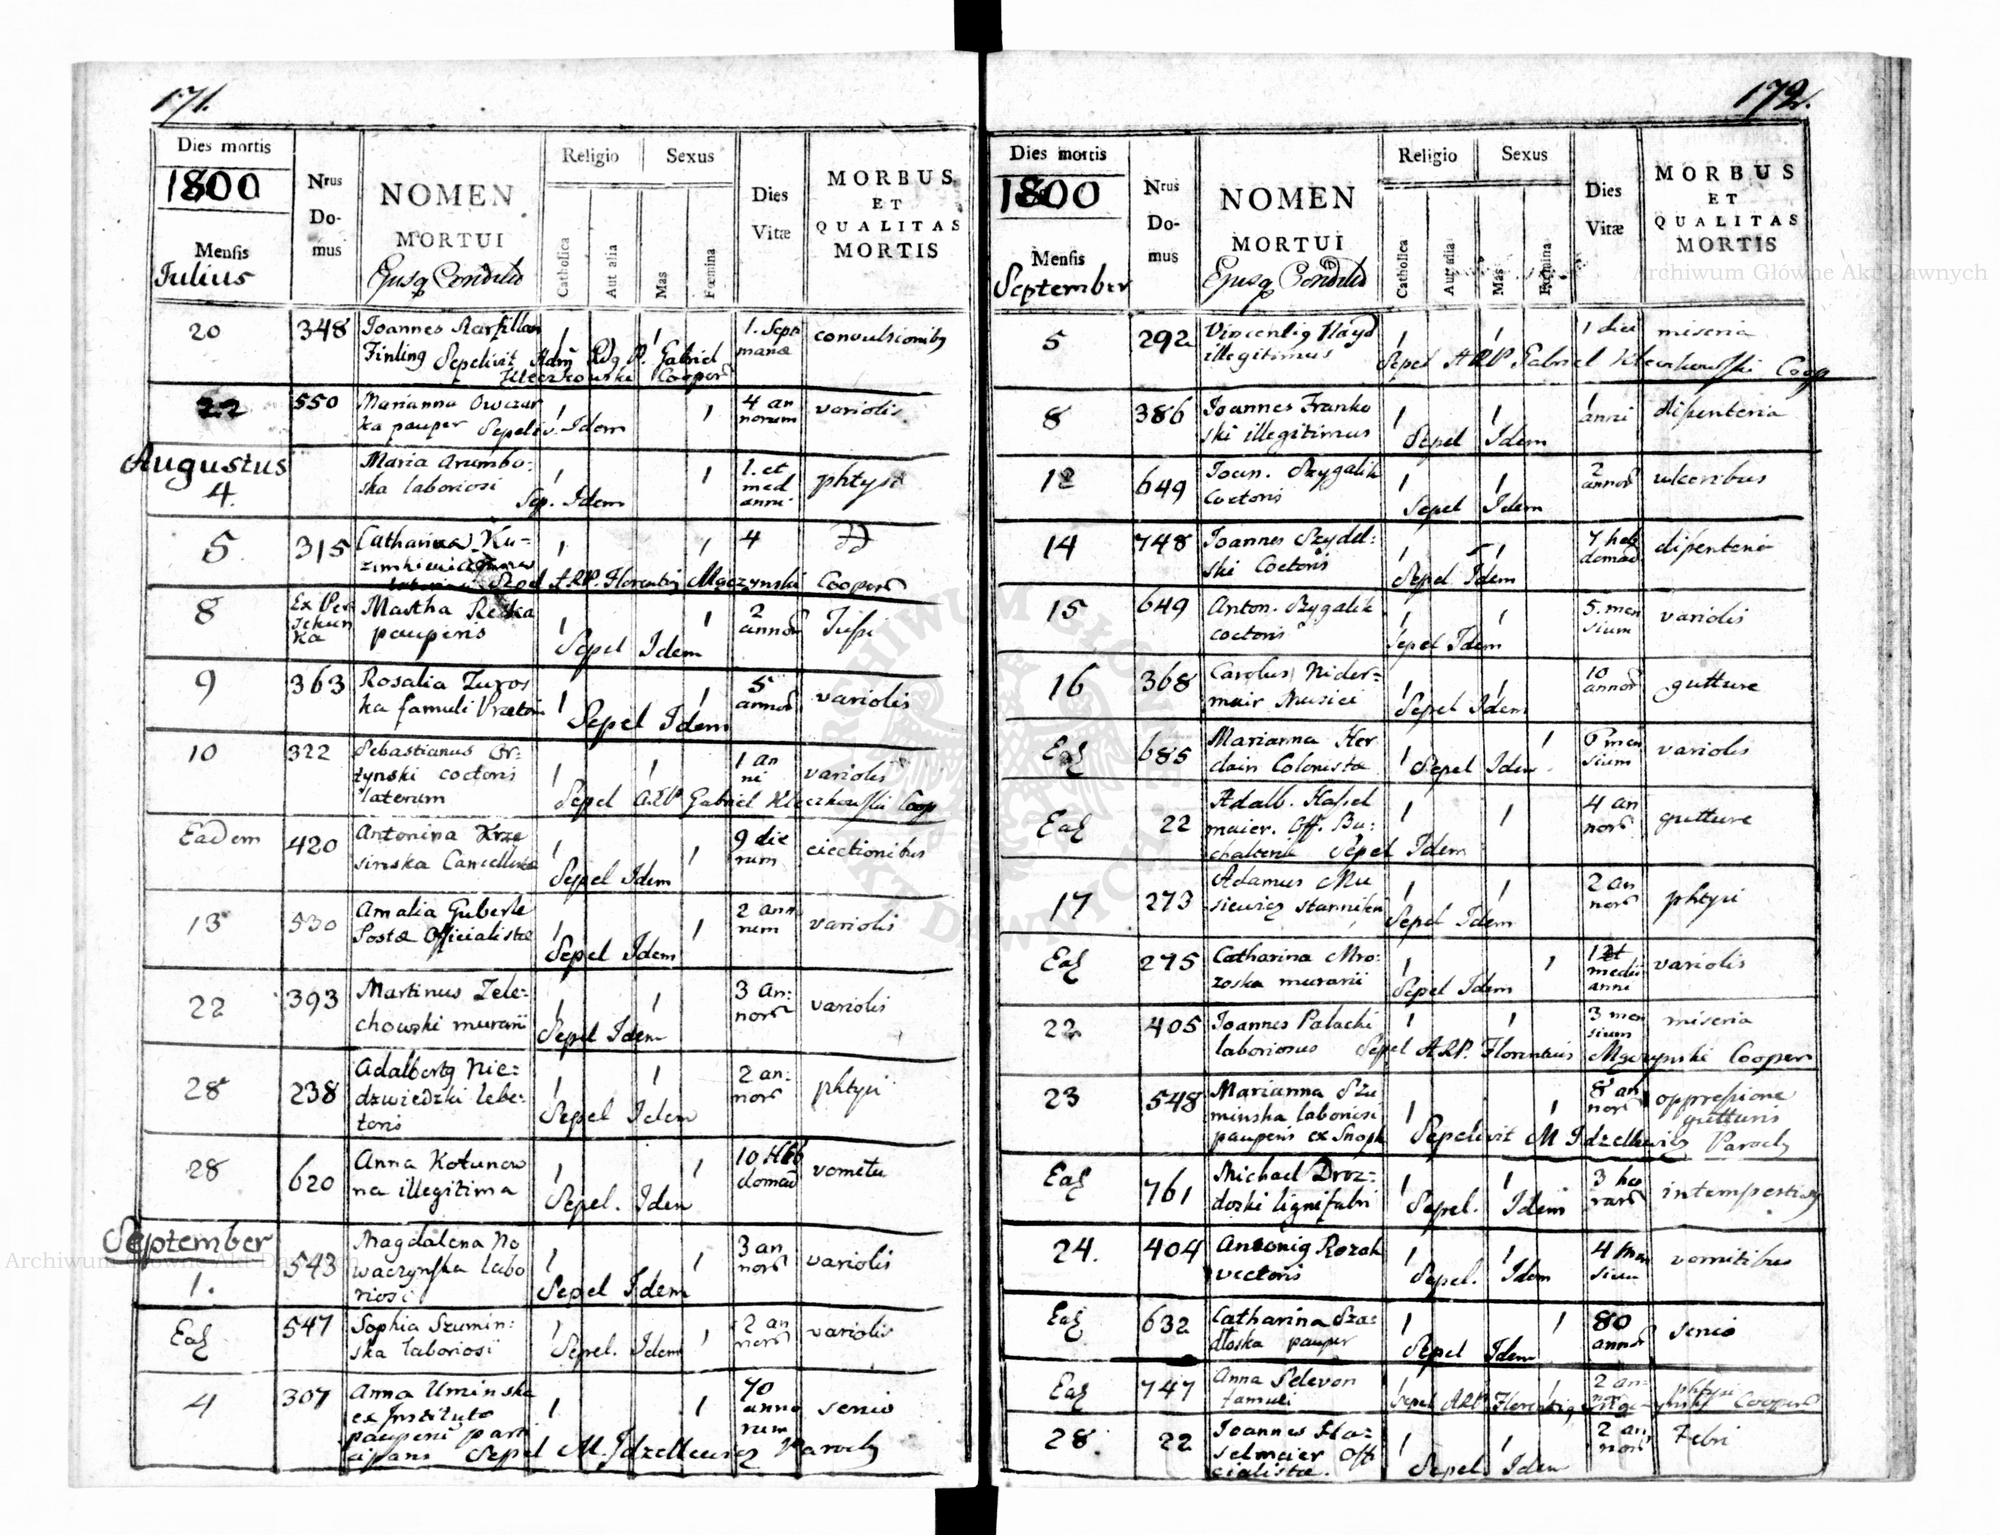 171.
Dies mortis
1800
Mensis
Julius
Nrus
Do-
mus
NOMEN
MORTUI
Ejusq Conditio
Religio
Sexus
Catholica
Aut alia
Mas
Fœmina
Dies
Vitæ
MORBUS
ET
QUALITAS
MORTIS
20 348 Joannes
Finling Sepelivit Gabriel
Kleczkowski Cooper
1. Sept
manæ
22 550 Marianna Owczar
ka pauper Sepeliv. Idem
4 an
norum
variolis
Augustus
4. Maria Arumbo:
ska laboriosi Sep. Idem
1. et
med
anni
phtysi
5 315 Catharina Ku-
4
Sepel ARP. Florentiq Mączynski Cooper
8 Mastha
pauperis
Sepel Idem
2
annor
Tussi
9 363 Rosalia Zuros
ka famuli
Sepel Idem
5
annor
variolis
10 322 Sebastianus Or-
zynski coctoris
laterum
Sepel ARP Gabriel Kleczkowski Coop
1 an
ni
variolis
Eadem 420 Antonina Krze
sinska
Sepel Idem
9 die
rum
eiectionibus
13 530 Amalia Guberle
Postæ Officialistæ
Sepel Idem
2 ann
rum
variolis
22 393 Martinus Zele-
chowski murarii
Sepel Idem
3 an:
nor
variolis
28 238 Adalbertq Nie-
dzwiedzki lebe-
toris
Sepel Idem
2 an:
nor
phtysi
28 620 Anna Kotunow
na illegitima
Sepel. Idem
10 Heb
domad
vomitu
September
1. 543 Magdalena No
waczynska labo
riosi
Sepel Idem
3 an
nor
variolis
Ead 547 Sophia Szumin:
ska laboriosi
Sepel. Idem
2 an
nor
variolis
4 307 Anna Uminska
ex Instituto
pauperū part
icipans Sepel M. Idzellewicz Paroch
70
anno
rum
senio
172.
Dies mortis
1800
Mensis
September
Nrus
Do-
mus
NOMEN
MORTUI
Ejusq Conditio
Religio
Sexus
Catholica
Aut alia
Mas
Fœmina
Dies
Vitæ
MORBUS
ET
QUALITAS
MORTIS
5 292 Vincentiq Hayd
illegitimus
Sepel ARP Gabriel Kleczkowski Coop
1 diei
miseria
8 386 Joannes Franko
ski illegitimus
Sepel Idem
1
anni
disenteria
12 649 Joan. Szygalik
Coctoris
Sepel Idem
2
annor
ulceribus
14 748 Joannes Szydel:
ski Coctoris
Sepel Idem
7 heb
domad
disenteria
15 649 Anton. Szygalik
coctoris
Sepel Idem
5. men
sium
variolis
16 368 Carolus Nider-
mair Musici
Sepel Idem
10
annor
gutture
Ead 685 Marianna Her
dain Colonistæ
Sepel Idem
6 men
sium
variolis
Ead 22 Adalb. Hasel
maier. Off. Bu:
Sepel Idem
4 an
nor
gutture
17 273 Adamus Mu
siewicz
Sepel Idem
2 an
nor
phtysi
Ead 275 Catharina Mro-
zoska murarii
Sepel Idem
1 et
medii
anni
variolis
22 405 Joannes Palacki
laboriosus Sepel ARP. Florentius Mączynski Cooper
3 men
sium
miseria
23 548 Marianna Szu
minska laboriosi
pauperis ex Snopk Sepelivit M Idzellewicz Paroch
8 an
nor
oppressione
gutturis
Ead 761 Michael Droz-
doski lignifabri
Sepel. Idem
3 ho
rar
intempestivq
24. 404 Antoniq Rozak
vectoris
Sepel. Idem
4 men
sium
vomitibus
Ead 632 Catharina Sza-
dloska pauper
Sepel Idem
80
annor
senio
Ead 747 Anna Selevon
famuli
Sepel ARP Florentiq Cooper
2 an
nor
phtysi
28 22 Joannes Ha-
selmaier Offi
cialistæ.
Sepel Idem
2 an
nor
Febri
Archiwum Główne Akt Dawnych
Archiwum Główne Akt Dawnych
ARCHIWUM GŁÓWNE
AKT DAWNYCH